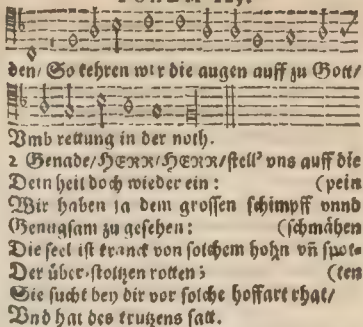 den/ So kehren wir die augen auff zu Gott/
Vmb rettung in der noth.
2 Genade/HERR/HERR/stell' vns auff die
Dein heil doch wieder ein: (pein
Wir haben ja dem grossen schimpff vnnd
Genugsam zu gesehen: (schmähen
Die seel ist kranck von solchem hohn vn̄ spot-
Der über-stoltzen rotten; (ten
Sie sucht bey dir vor solche hoffart rhat/
Vnd hat des trutzens satt.